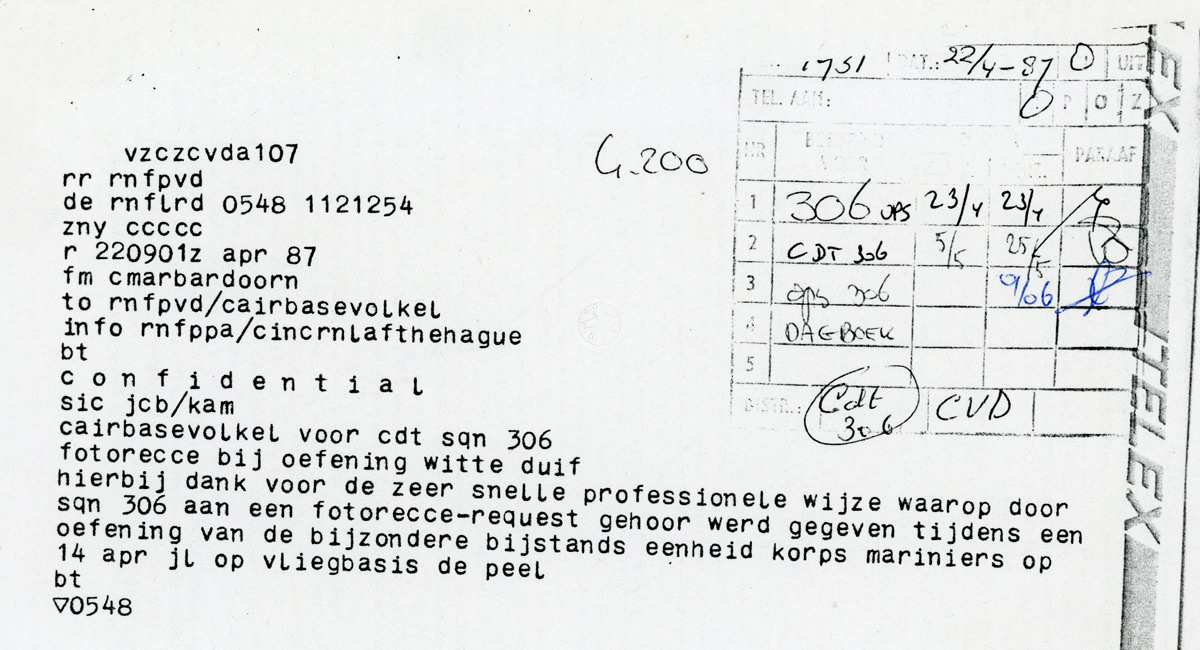 1751 DAT.: 22/4-87 0 UIT
TEL. AAN: P O Z
NR PARAAF
1 306 OPS 23/4 23/4
2 CDT 306 5/5 25/5
3 ops 306 9/06
4 DAGBOEK
5
DISTR.: Cdt 306 CVD
G.200
vzczcvda107
rr rnfpvd
de rnflrd 0548 1121254
zny ccccc
r 220901z apr 87
fm cmarbardoorn
to rnfpvd/cairbasevolkel
info rnfppa/cincrnlafthehague
bt
c o n f i d e n t i a l
sic jcb/kam
cairbasevolkel voor cdt sqn 306
fotorecce bij oefening witte duif
hierbij dank voor de zeer snelle professionele wijze waarop door
sqn 306 aan een fotorecce-request gehoor werd gegeven tijdens een
oefening van de bijzondere bijstands eenheid korps mariniers op
14 apr jl op vliegbasis de peel
bt
▽0548
EX
TELEX